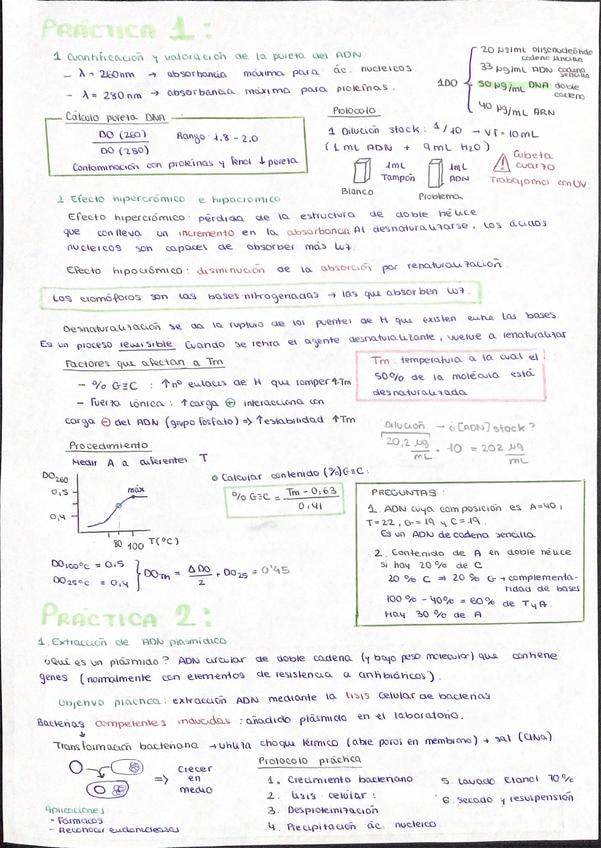 PRÁCTICA 1:
1 Cuantificación y valoración de la pureza del ADN
- λ = 260nm → absorbancia máxima para ác. nucleicos
- λ = 280nm → absorbancia máxima para proteínas.
1DO
20 µg/mL oligonucleótido cadena sencilla
33 µg/mL ADN cadena sencilla
50 µg/mL DNA doble cadena
40 µg/mL ARN
Cálculo pureza DNA
DO (260)
DO (280)
Rango: 1.8 - 2.0
Contaminación con proteínas y fenol ↓ pureza
Protocolo
1 Dilución stock: 1/10 → Vf = 10mL
(1mL ADN + 9mL H2O)
1mL Tampón
Blanco
1mL ADN
Problema
Cubeta cuarzo
Trabajamos con UV
2 Efecto hipercrómico e hipocrómico
Efecto hipercrómico: pérdida de la estructura de doble hélice
que conlleva un incremento en la absorbancia. Al desnaturalizarse, los ácidos
nucleicos son capaces de absorber más luz.
Efecto hipocrómico: disminución de la absorción por renaturalización
Los cromóforos son las bases nitrogenadas → las que absorben luz.
Desnaturalización se da la ruptura de los puentes de H que existen entre las bases.
Es un proceso reversible. Cuando se retira el agente desnaturalizante, vuelve a renaturalizar
Factores que afectan a Tm
- % G≡C : ↑nº enlaces de H que romper ↑Tm
- Fuerza iónica: ↑carga ⊕ interacciona con
carga ⊖ del ADN (grupo fosfato) ⇒ ↑estabilidad ↑Tm
Tm: temperatura a la cual el
50% de la molécula está
desnaturalizada
Dilución → ¿[ADN] stock?
20,2 µg/mL · 10 = 202 µg/mL
Procedimiento
Medir A a diferentes T
DO260
0,5
0,4
máx
80 100 T(ºC)
Calcular contenido (%)G≡C:
% G≡C = Tm - 0,63 / 0,41
DO100ºC = 0,5
DO25ºC = 0,4
DOTm = ΔDO/2 + DO25 = 0'45
PREGUNTAS:
1. ADN cuya composición es A=40,
T=22, G=19 y C=19.
Es un ADN de cadena sencilla
2. Contenido de A en doble hélice
si hay 20% de C
20% C ⇒ 20% G → complementa-
riedad de bases
100% - 40% = 60% de T y A
Hay 30% de A
PRÁCTICA 2:
1. Extracción de ADN plasmídico
¿Qué es un plásmido? ADN circular de doble cadena (y bajo peso molecular) que contiene
genes (normalmente con elementos de resistencia a antibióticos).
Objetivo práctica: extracción ADN mediante la lisis celular de bacterias
Bacterias competentes inducidas: añadido plásmido en el laboratorio.
↓
Transformación bacteriana → utiliza choque térmico (abre poros en membrana) + sal (ClNa)
⇒ Crecer en medio
Aplicaciones
- Fármacos
- Reconocer endonucleasas
Protocolo práctica
1. Crecimiento bacteriano
2. Lisis celular:
3. Desproteinización
4. Precipitación ác. nucleico
5. Lavado Etanol 70%
6. Secado y resuspensión